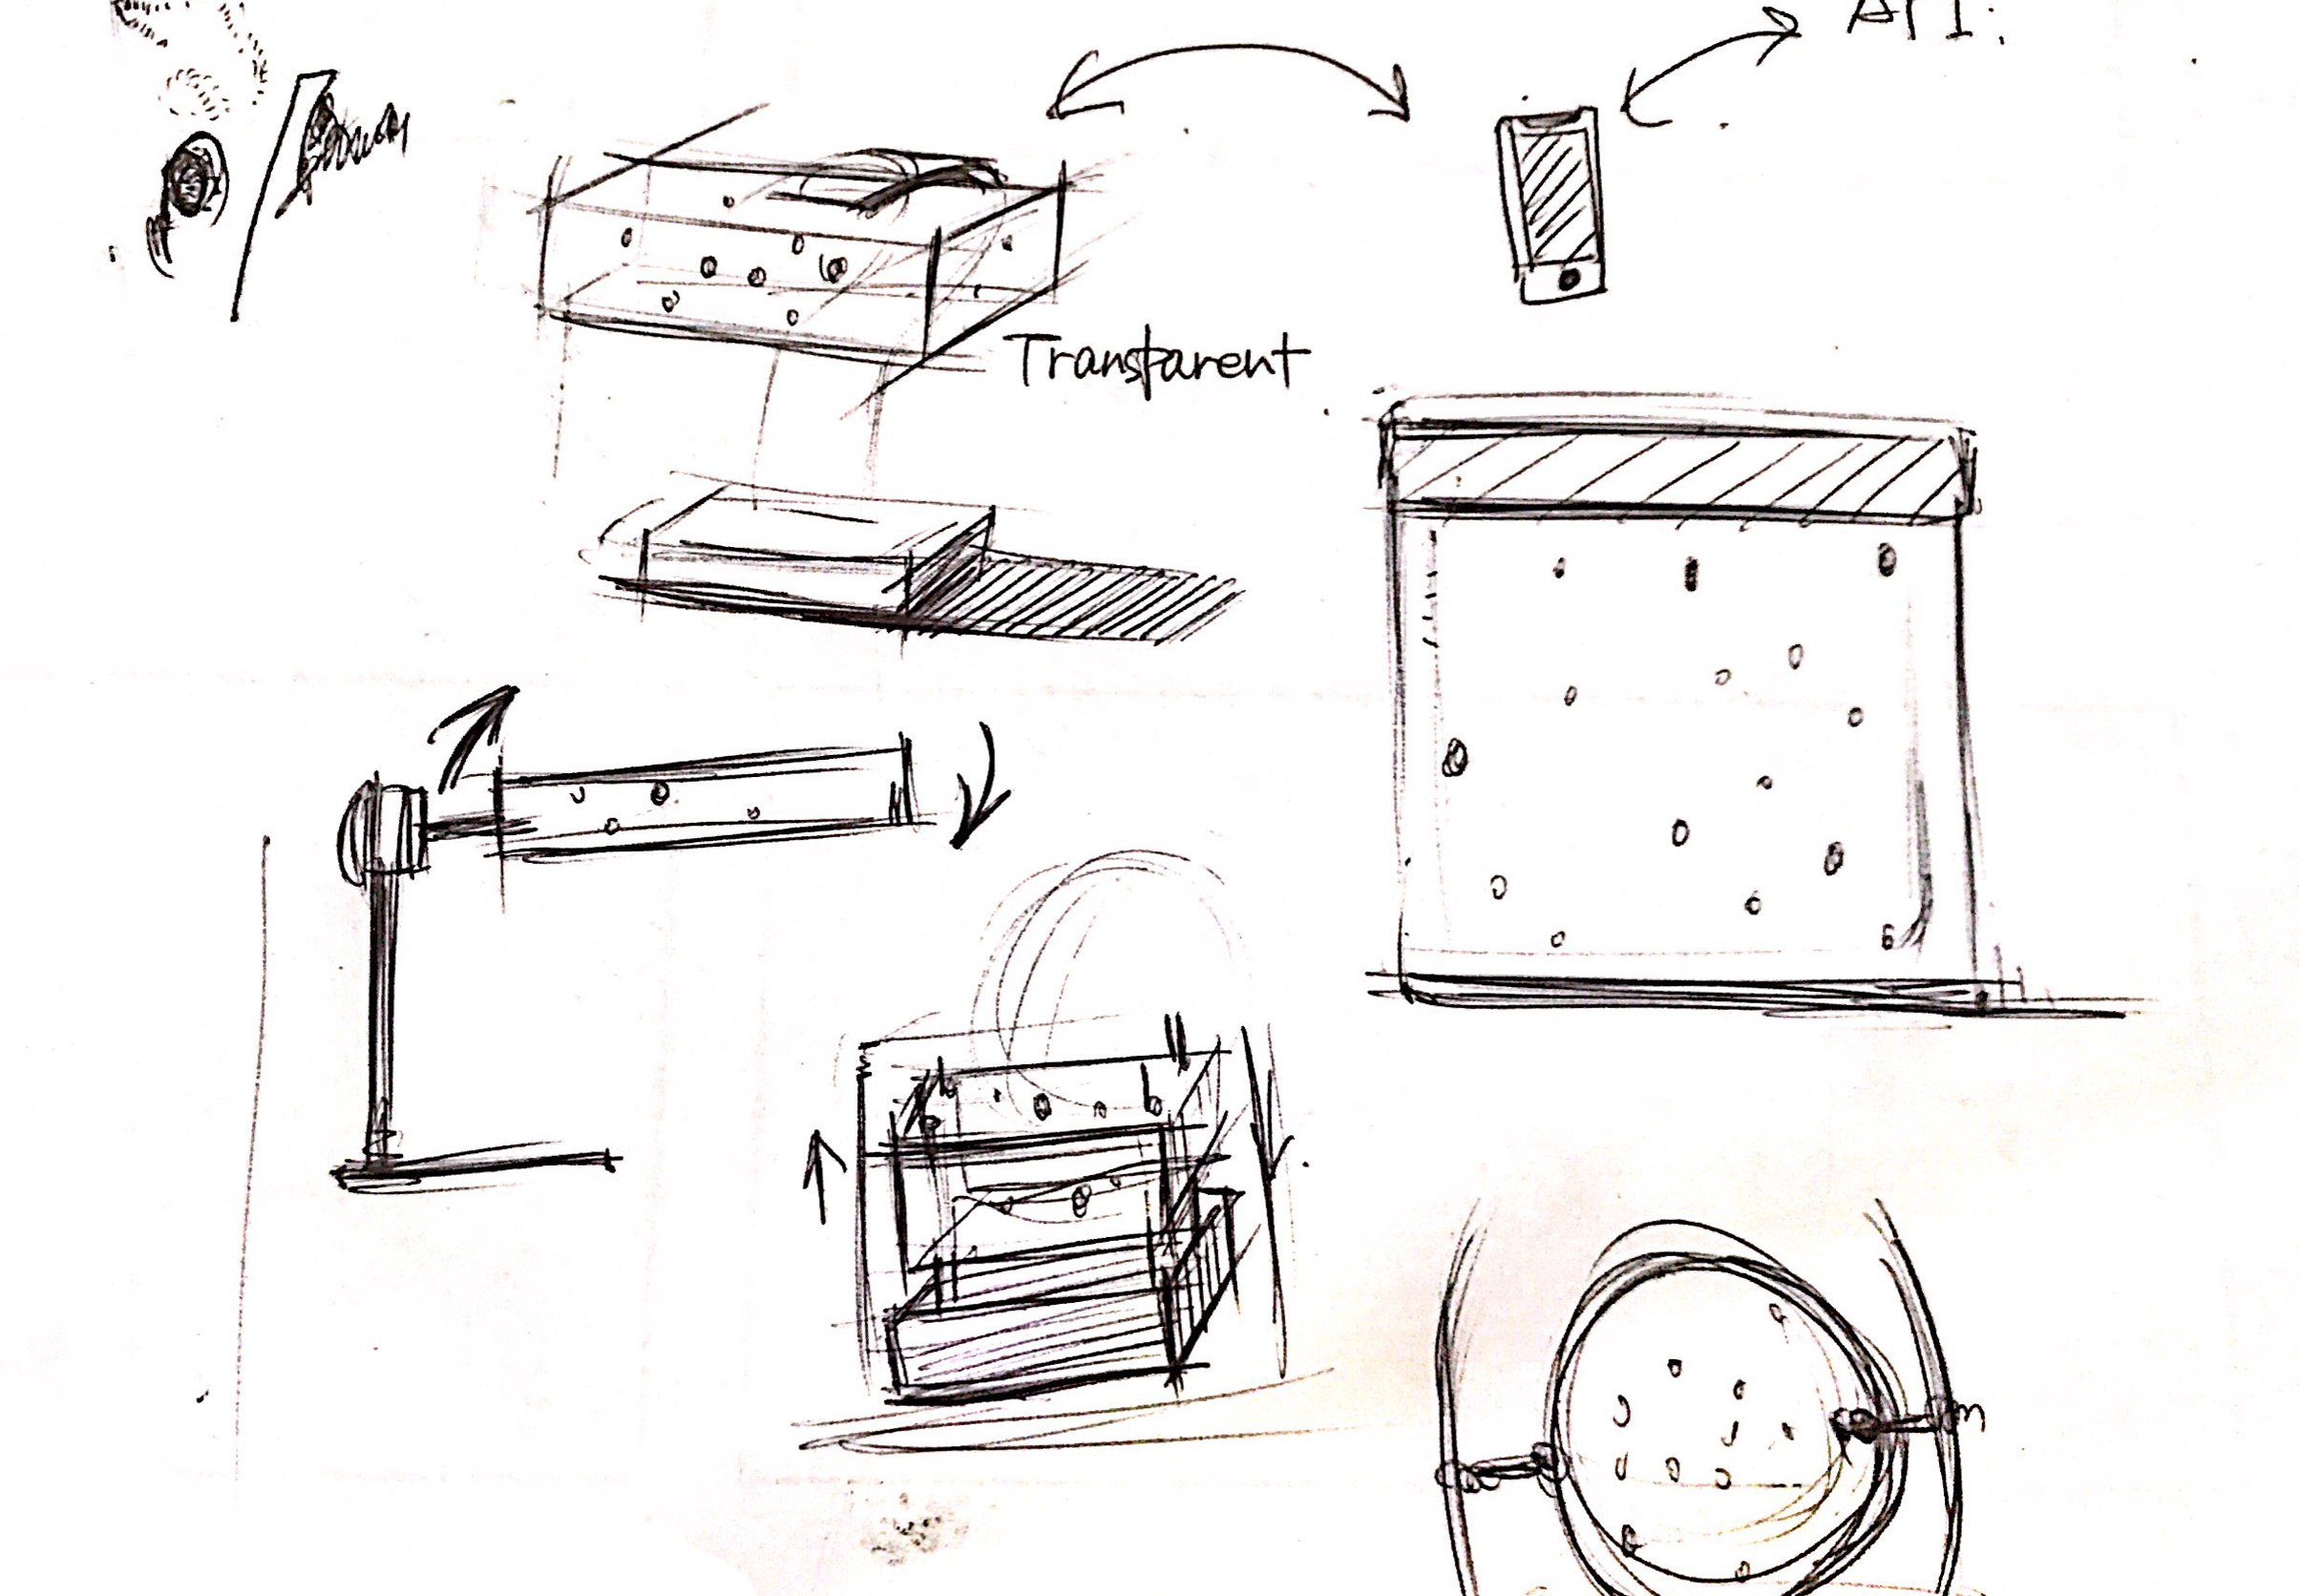 API:
Transparent